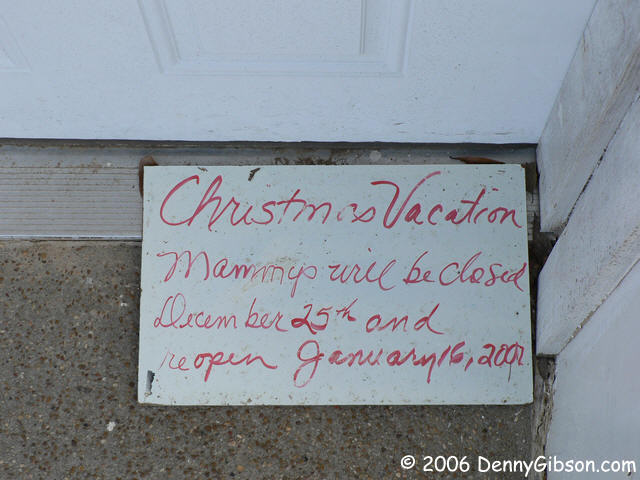 Christmas Vacation
Mammys will be closed
December 25th and
reopen January 16, 2007
© 2006 DennyGibson.com